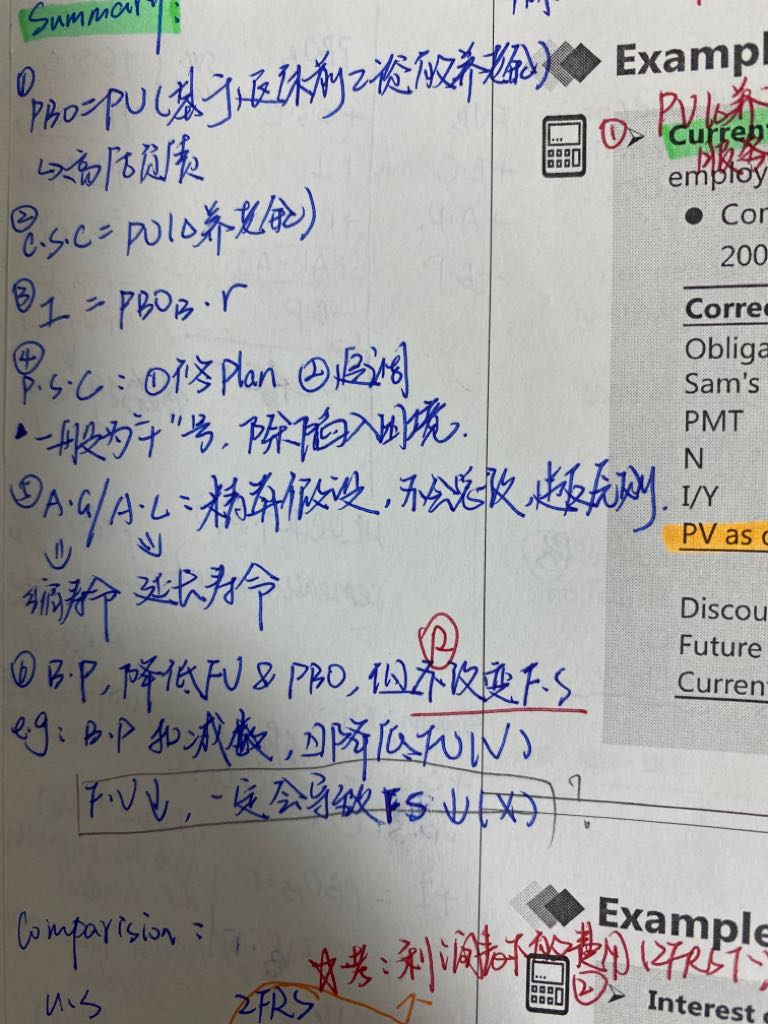 Summary:
① PBO=PV(基于退休前工资的养老金)
↳高估负债
② C.S.C=PV(△养老金)
③ I = PBO_B · r
④ P.S.C: ①修Plan ②追溯
• 一般为"+"号, 除陷入困境.
⑤ A.G/A.L: 精算假设,
⇓ ⇓
缩寿命 延长寿命
⑥ B.P, 降低FV & PBO, 但不改变F.S
R
e.g: B.P 扣减数, 可降低FV(√)
F.V↓, 一定会导致FS↓(X) ?
Comparision:
U.S IFRS
☆考: 利润表下的费用(IFRS下
Exampl
① PV(△养
服务
Current
employ
● Con
200
Correc
Obliga
Sam's
PMT
N
I/Y
PV as o
Discou
Future
Current
Example
② ➢ Interest c